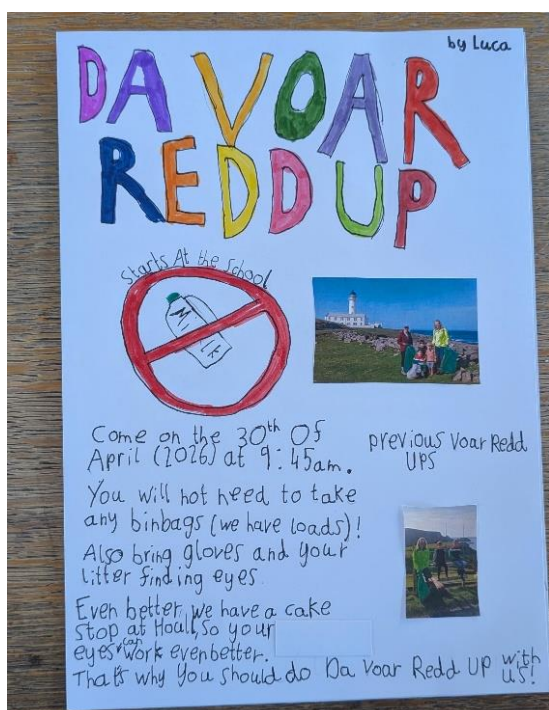 by Luca
DA VOAR
REDD UP
Starts At the School
Milk
Come on the 30th Of
April (2026) at 9:45am.
previous Voar Redd
UPS
You will not need to take
any binbags (we have loads)!
Also bring gloves and your
litter finding eyes.
Even better, we have a cake
stop at Hoall, So your
eyes can work even better.
That's why You should do Da Voar Redd UP with
us!